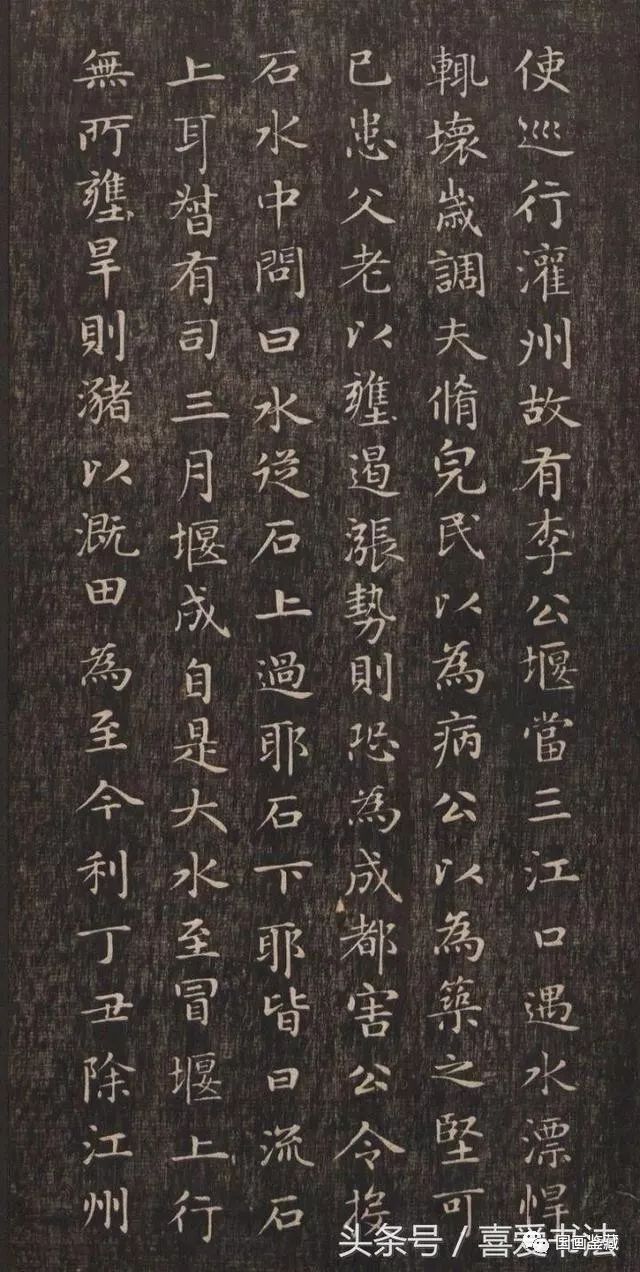 使巡行灌州故有李公堰當三江口遇水漂悍
輒壞歲調夫脩完民以為病公以為築之堅可
已患父老以壅遏漲勢則恐為成都害公令投
石水中問曰水從石上過耶石下耶皆曰流石
上耳督有司三月堰成自是大水至冒堰上行
無所壅旱則瀦以溉田為至今利丁丑除江州
头条号 / 喜爱书法
国画鉴藏